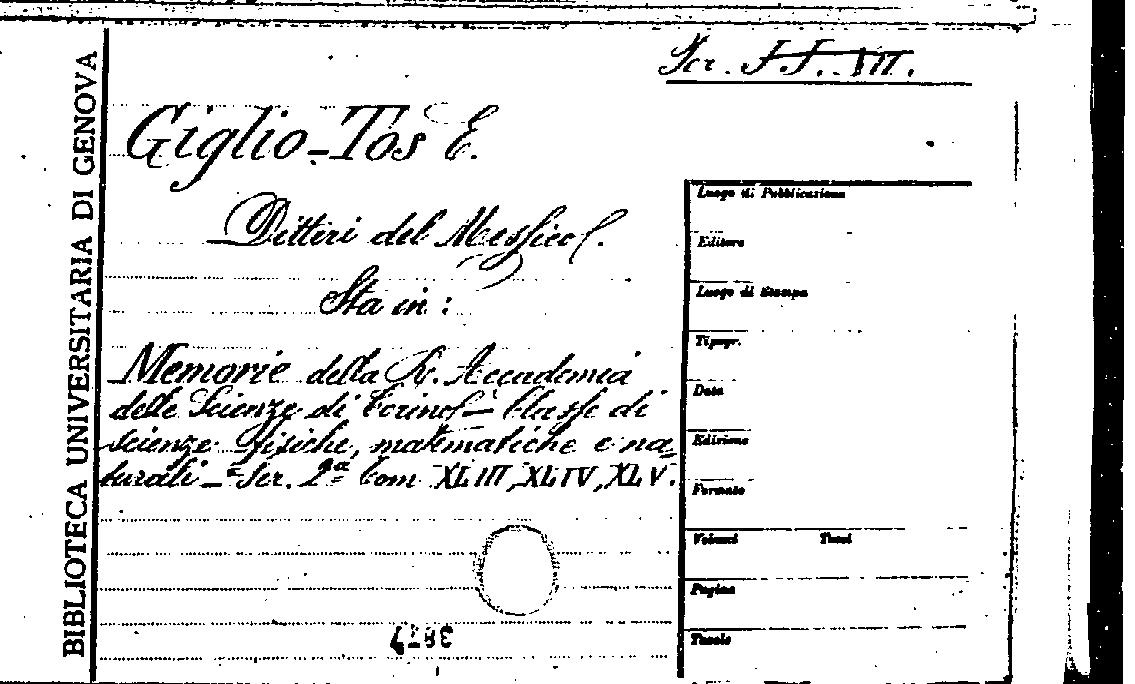 BIBLIOTECA UNIVERSITARIA DI GENOVA
Ser. F.F. VII.
Giglio-Tos E.
Ditteri del Messico.
Sta in:
Memorie della R. Accademia
delle Scienze di Torino - Classe di
scienze fisiche, matematiche e na-
turali - Ser. 2ª Tom XLIII, XLIV, XLV.
Luogo di Pubblicazione
Editore
Luogo di Stampa
Tipogr.
Data
Edizione
Formato
Volumi Tomi
Pagine
Tavole